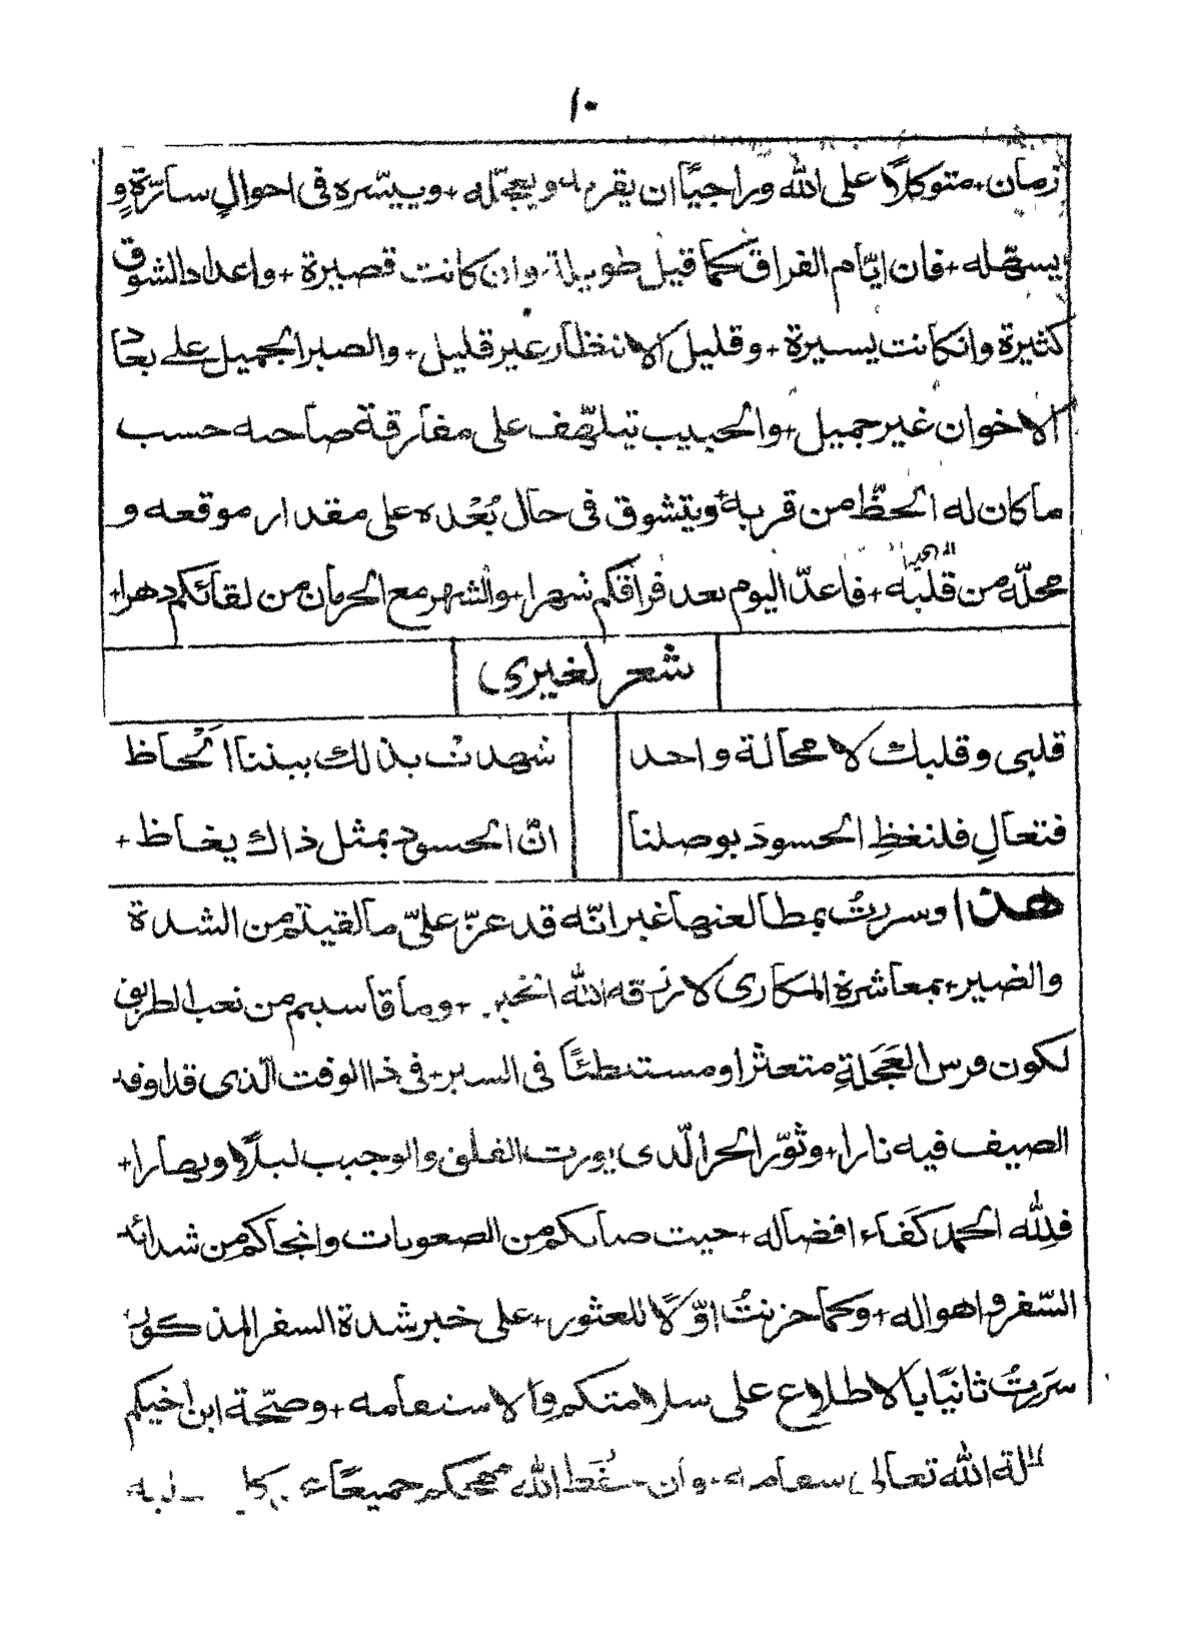 ١٠
زمان + متوكلاً على الله وراجيًا ان يقرمه ويعجّله + وييسّره فى احوالٍ سارّةٍ و
يسهّله + فان ايّام الفراق كما قيل طويلة وان كانت قصيرة + واعداد الشوق
كثيرة وانكانت يسيرة + وقليل الانتظار غير قليل + والصبر الجميل على بعاد
الاخوان غير جميل + والحبيب يتلهّف على مفارقة صاحبه حسب
ما كان له الحظّ من قربه + ويتشوق فى حال بُعْده على مقدار موقعه و
محلّه من قلبه + فاعدّ اليوم بعد فراقكم شهرا + والشهر مع الحرمان من لقائكم دهرا +
شعر لغيرى
قلبى وقلبك لا محالة واحد شهدت بذلك بيننا الْحاظ
فتعالِ فلنغظِ الحسودَ بوصلنا انّ الحسود بمثل ذاك يغاظ +
هذا وسررتُ بمطالعتها غير انّه قد عزّ علىّ ما لقيتم من الشدة
والضير + بمعاشرة المكارى لا رزقه الله الخير + وما قاسيتم من تعب الطريق
لكون فرس العَجَلةِ متعثرا ومستبطئًا فى السير + فى ذا الوقت الّذى قد اوقد
الصيف فيه نارا + وثوّر الحر الّذى يورث القلق والوجيب ليلاً ونهارا +
فللّه الحمد كَفَاء افضاله + حيث صانكم من الصعوبات وانجاكم من شدائد
السّفر واهواله + وكما حزنتُ اوّلًا للعثور + على خبر شدة السفر المذكور
سَررتُ ثانيًا بالاطلاع على سلامتكم والاستقامه + وصحّة ابن اخيكم
الله تعالى وان الله مهجكم جميعًا